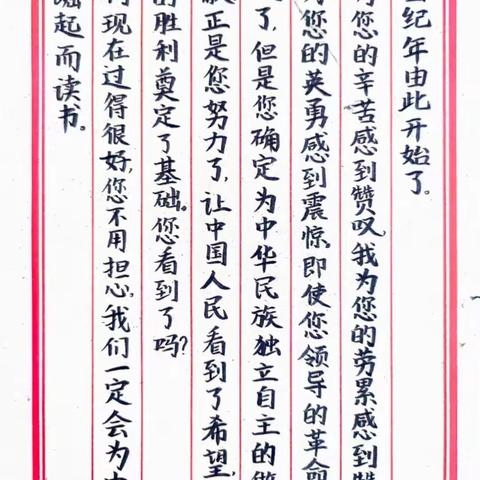 纪年由此开始了。
您的辛苦感到赞叹,我为您的劳累感到赞
为您的英勇感到震惊,即使您领导的革命
了,但是您确定为中华民族独立自主的
正是您努力了,让中国人民看到了希望,
的胜利奠定了基础。您看到了吗?
现在过得很好,您不用担心,我们一定会为中
崛起而读书。